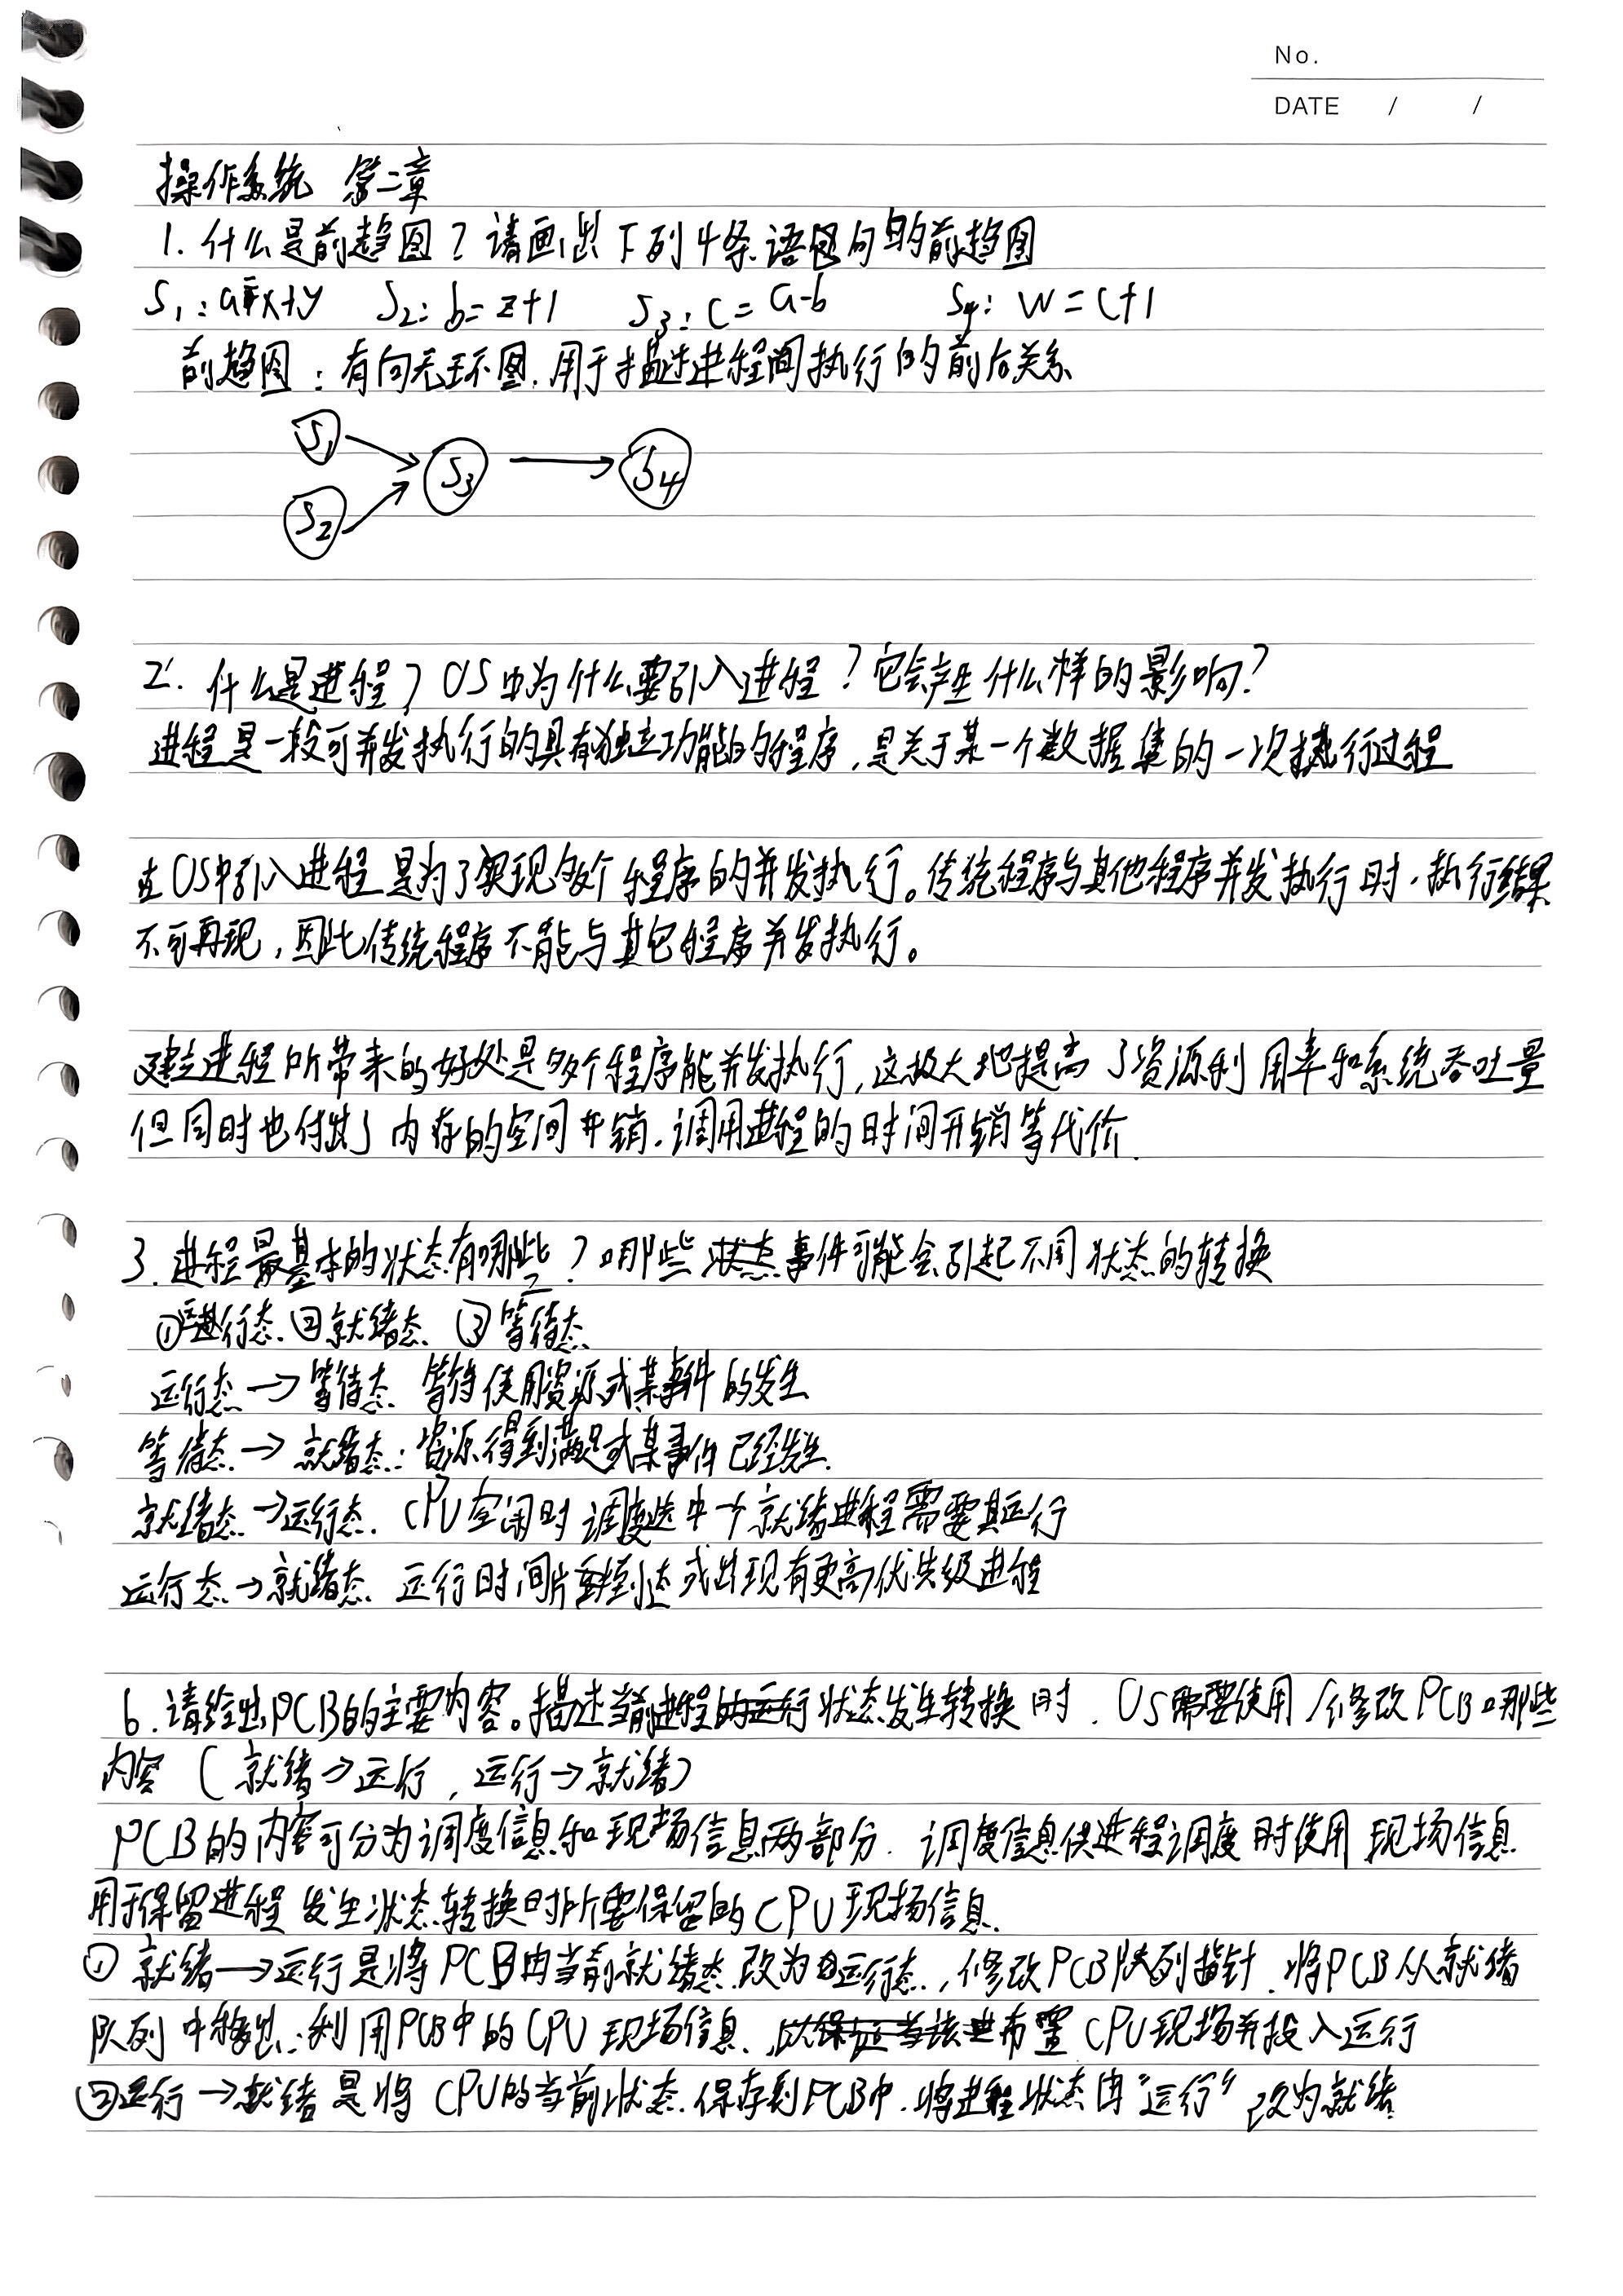 No.
DATE / /
操作系统 第二章
1. 什么是前趋图？请画出下列4条语句的前趋图
S1: a=x+y S2: b=z+1 S3: c=a-b S4: w=c+1
前趋图：有向无环图，用于描述进程间执行的前后关系
S1
S3 S4
S2
2. 什么是进程？OS中为什么要引入进程？它会产生什么样的影响？
进程是一段可并发执行的具有独立功能的程序，是关于某一个数据集的一次执行过程
在OS中引入进程是为了实现多个程序的并发执行。传统程序与其他程序并发执行时，执行结果
不可再现，因此传统程序不能与其它程序并发执行。
建立进程所带来的好处是多个程序能并发执行，这极大地提高了资源利用率和系统吞吐量
但同时也付出了内存的空间开销，调用进程的时间开销等代价.
3. 进程最基本的状态有哪些？哪些事件可能会引起不同状态的转换
①运行态 ②就绪态 ③等待态
运行态→等待态 等待使用资源或某事件的发生
等待态→就绪态：资源得到满足或某事件已经发生
就绪态→运行态. CPU空闲时调度选中一个就绪进程需要其运行
运行态→就绪态 运行时间片到达或出现有更高优先级进程
6. 请给出PCB的主要内容。描述当前进程状态发生转换时，OS需要使用/修改PCB哪些
内容（就绪→运行，运行→就绪）
PCB的内容可分为调度信息和现场信息两部分. 调度信息供进程调度时使用 现场信息
用于保留进程发生状态转换时所要保留的CPU现场信息.
① 就绪→运行是将PCB由当前就绪态改为运行态，修改PCB队列指针，将PCB从就绪
队列中移出；利用PCB中的CPU现场信息，布置CPU现场并投入运行
②运行→就绪是将CPU的当前状态保存到PCB中，将进程状态由“运行”改为就绪